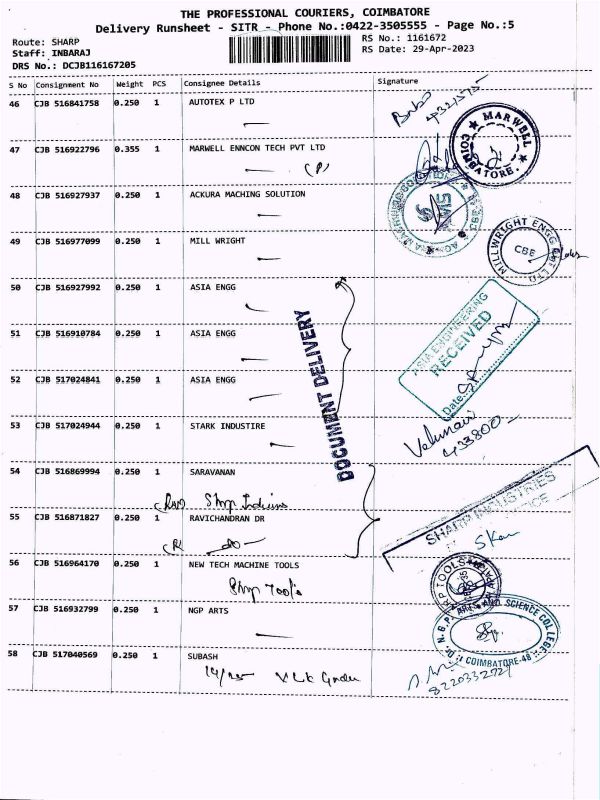 THE PROFESSIONAL COURIERS, COIMBATORE
Delivery Runsheet - SITR - Phone No.:0422-3505555 - Page No.:5
Route: SHARP
Staff: INBARAJ
DRS No.: DCJB116167205
RS No.: 1161672
RS Date: 29-Apr-2023
S No Consignment No Weight PCS Consignee Details Signature
46 CJB 516841758 0.250 1 AUTOTEX P LTD
47 CJB 516922796 0.355 1 MARWELL ENNCON TECH PVT LTD
(P)
MARWELL
COIMBATORE.
48 CJB 516927937 0.250 1 ACKURA MACHING SOLUTION
49 CJB 516977099 0.250 1 MILL WRIGHT
MILLWRIGHT ENGG PVT LTD
CBE
50 CJB 516927992 0.250 1 ASIA ENGG
51 CJB 516910784 0.250 1 ASIA ENGG
52 CJB 517024841 0.250 1 ASIA ENGG
DOCUMENT DELIVERY
ASIA ENGINEERING
RECEIVED
Date:
53 CJB 517024944 0.250 1 STARK INDUSTIRE
433800
54 CJB 516869994 0.250 1 SARAVANAN
SHARP INDUSTRIES
55 CJB 516871827 0.250 1 RAVICHANDRAN DR
56 CJB 516964170 0.250 1 NEW TECH MACHINE TOOLS
Shrp Tools
57 CJB 516932799 0.250 1 NGP ARTS
Dr. N. G. P. ARTS AND SCIENCE COLLEGE
COIMBATORE-48
58 CJB 517040569 0.250 1 SUBASH